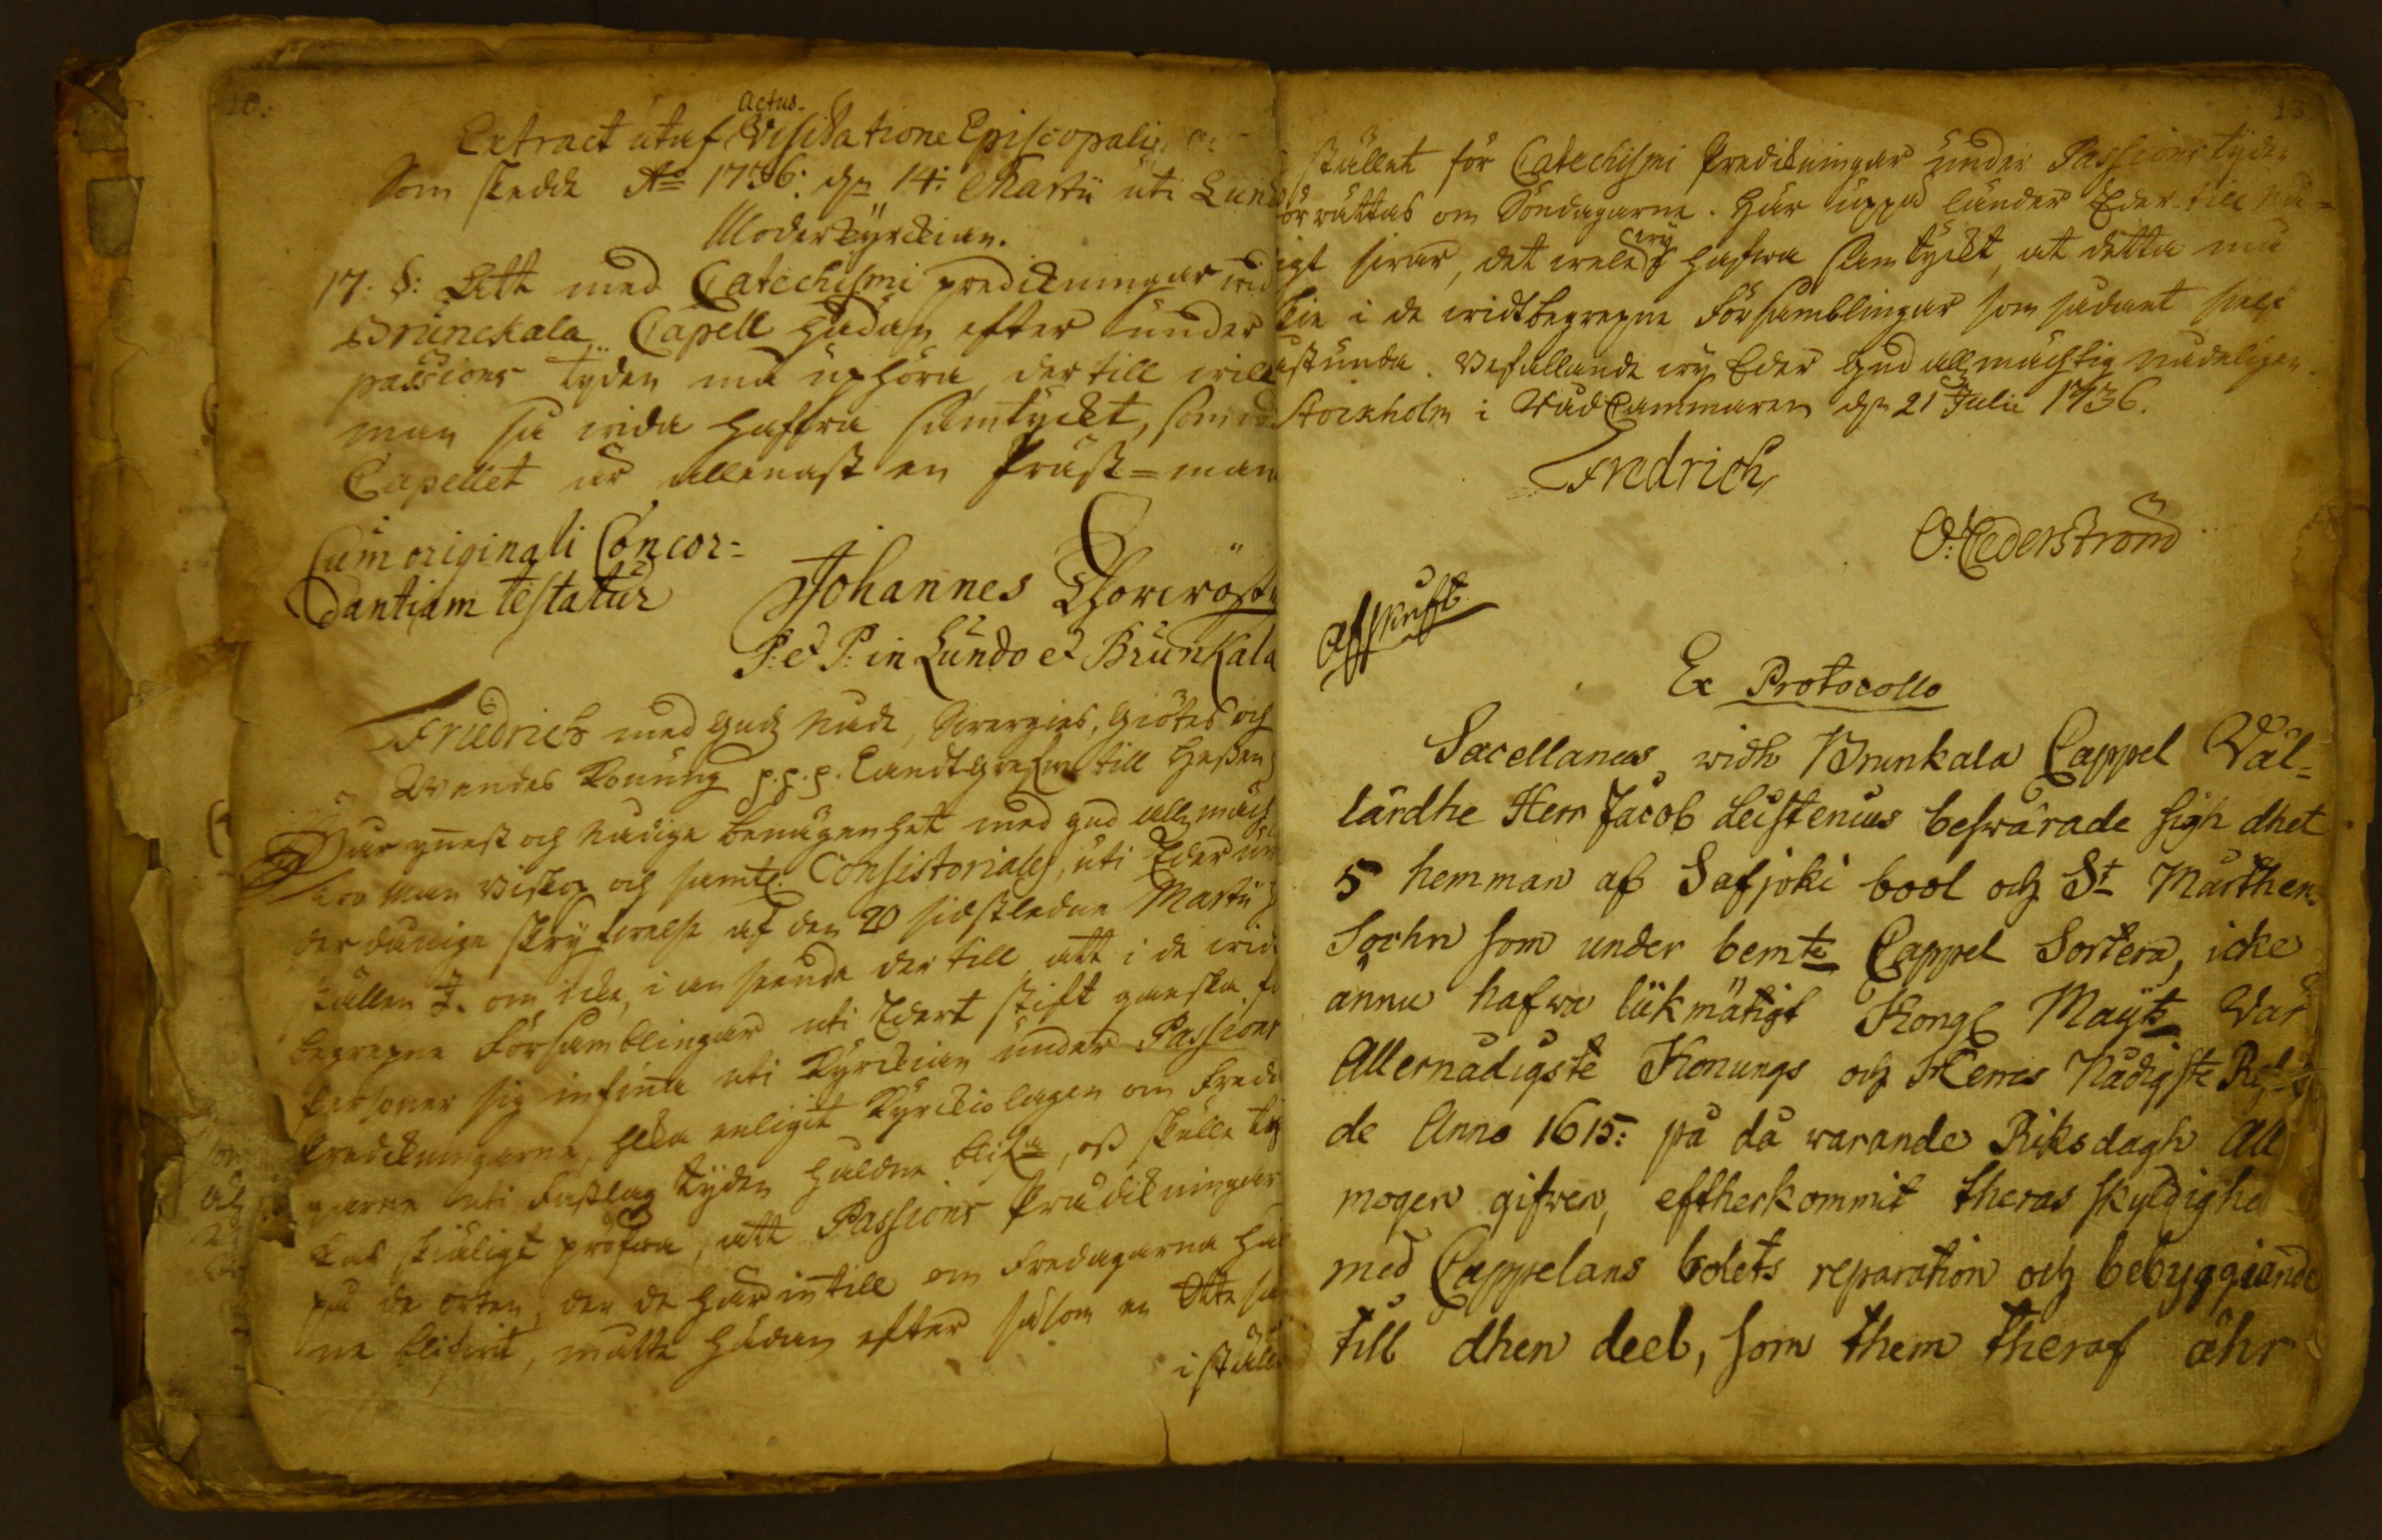 10.
Extract utaf Actus Visitatione Episcopalis
Som skedde Ao 1736: dn 14: Martii uti Lundo
Moderkyrckian.
17. §: Att med Catechismi predickningar wid
Brunckala Capell hädan efter under
passions tyden må uphöra, dertill will
man så wida hafwa samtyckt, som wid
Capellet är allenast en Präst=man
Cum originali Concor=
dantiam testatur Johannes
P: et P: in Lundo et Brunkala
Friedrich med Gudz Nåde, Swerges, Giötes och
Wendes Konung p.p.p. Landtgrefwe till Hessen
Wår ynnest och Nådige benägenhet med gud allzmäch
Tro Man Biskop och samtl. Consistoriales, uti Eder un
derdånige skryfwelse af den 20 sidstledne Martii
ställen I. om icke, i anseende dertill att i de wid
begrepne Församblingar uti Edert Stift ganska få
Personer sig infinna uti Kyrckian under Passions
Predickningarne, hwilka enligit Kyrckiolagen om Freda
garne uti Fastlags tyden håldne blifwa, oss skulle tä
kas skiäligt pröfwa, att Passions Prädickningar
på de orter, der de härintill om Fredagarna håld
ne blifwit, måtte hädan efter såsom en Otte så
i ställe
13
stället för Catechismi Predickningar under Passions tyden
örrättas om Söndagarne. Här uppå länder Eder till nå=
igt swar, det wele wij hafwa samtyckt, at detta må
skie i de widtbegrepne Församblingar som sådant sielf
åstunda. Befallande wij Eder Gud allzmächtig nådeligen.
Stockholm i Råd Cammaren dn 21 Julii 1736.
Fredrich
O: Cederström
Afskrift
Ex Protocollo
Sacellanus widh Brunkala Cappel Wäl=
lärdhe Herr Jacob Leistenius beswärade sigh dhet
5 hemman af Safjoki bool och St Mårthens
Sochn som under bemte Cappel Sortera, icke
ännu hafwa liikmätigt Kongl Mayts Wår
Allernådigste Konungs och Herres Nådigste
de Anno 1615: på då warande Riksdagh All
mogen gifwen, eftherkommit theras skyldighe
med Cappelans bolets reparation och bebyggiande
till dhen deel, som them theraf ähr